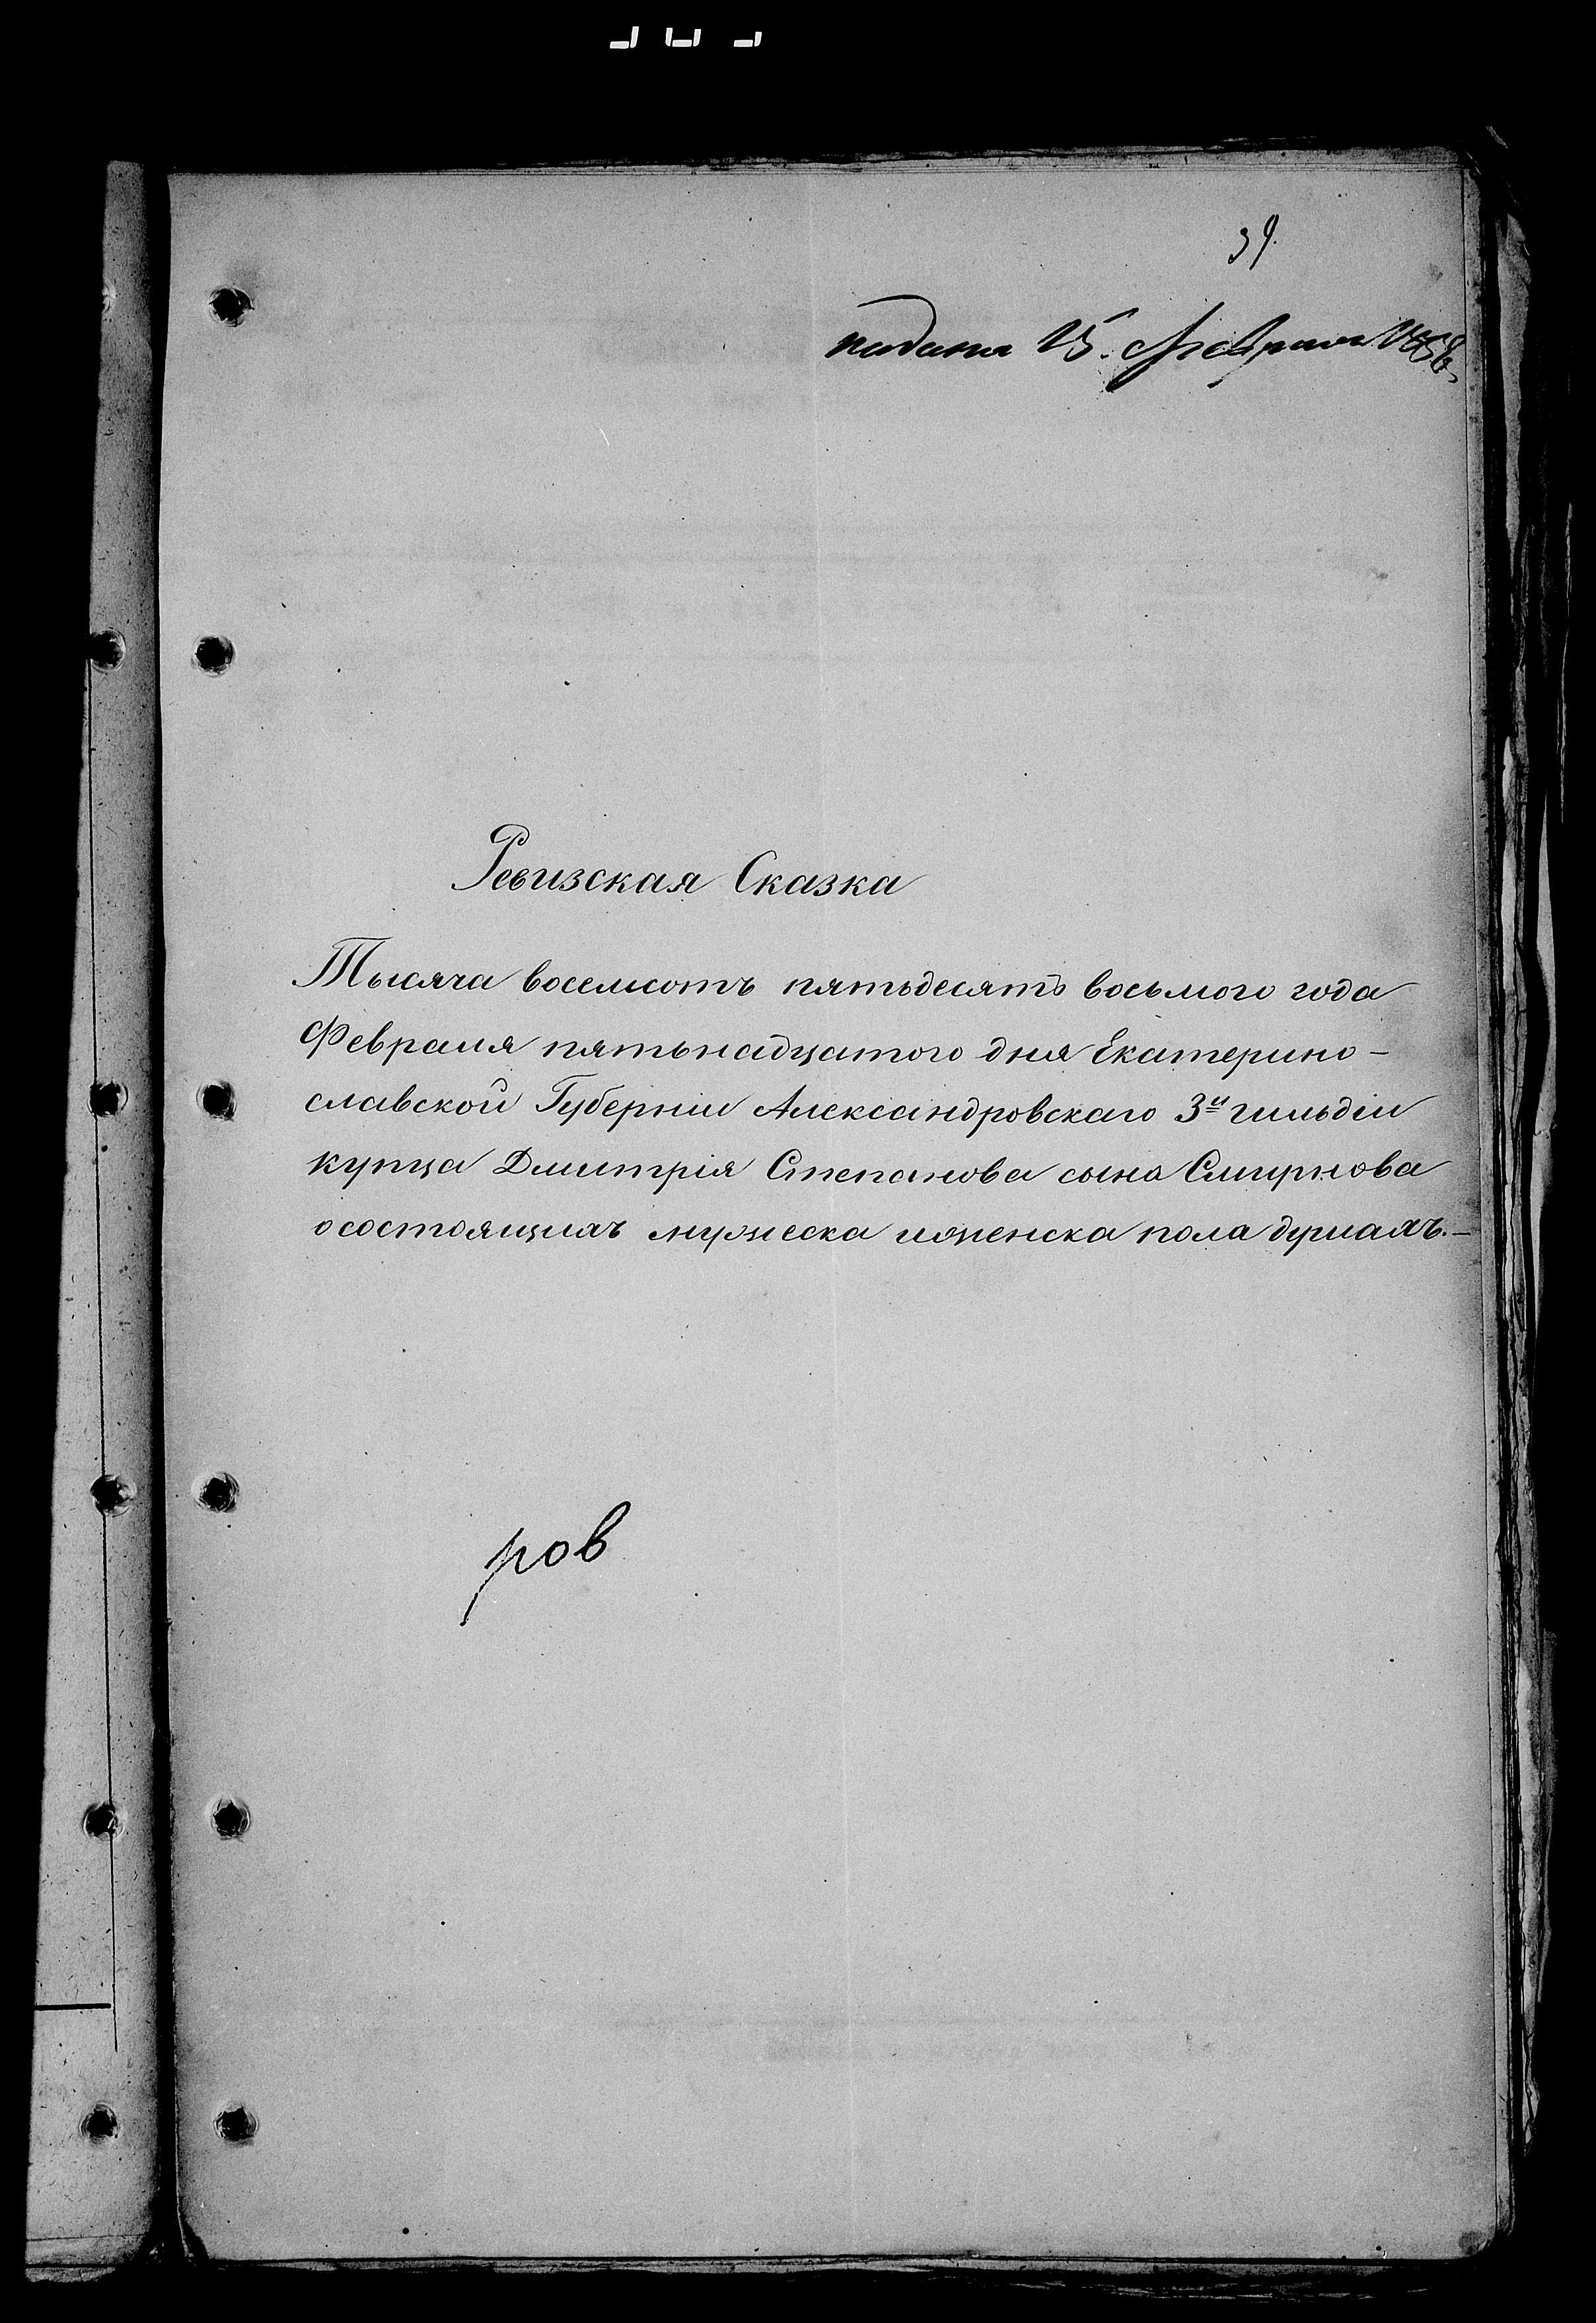 39.
подана 15. Февраля 1858
Ревизская Сказка
Тысяча восемсотъ пятьдесятъ восьмого года
Февраля пятьнадцатого дня Екатерино-
славской Губерніи Александровскаго 3й гильдіи
купца Дмитрія Степанова сына Смирнова
о состоящихъ мужеска и женска пола душахъ.—
ров